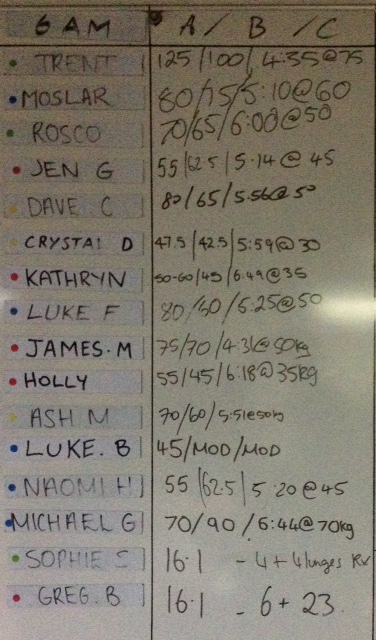 6 AM A / B / C
TRENT 125/100/4:35@75
MOSLAR 80/75/5:10@60
ROSCO 70/65/6:00@50
JEN G 55/62.5/5.14@ 45
DAVE C 80/65/5.56@50
CRYSTAL D 47.5/42.5/5:59@30
KATHRYN 50-60/45/6:49@35
LUKE F 80/60/5:25@50
JAMES.M 75/70/4:31@50kg
HOLLY 55/45/6:18@35kg
ASH M 70/60/5:51@50kg
LUKE. B 45/MOD/MOD
NAOMI H 55/62.5/5.20@45
MICHAEL G 70/90/6:44@70kg
SOPHIE S 16.1 - 4+4lunges RX
GREG. B 16.1 - 6+ 23.